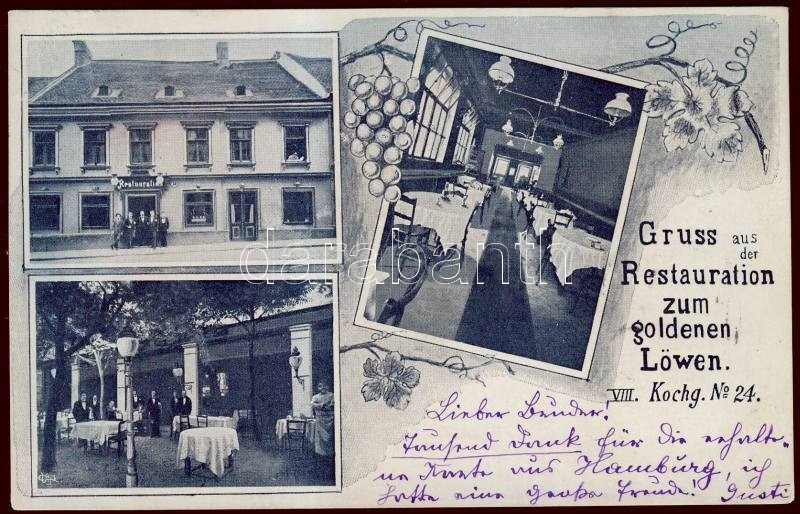 Restauration
Gruss aus der
Restauration
zum
goldenen
Löwen.
VIII. Kochg. No 24.
Lieber Bruder!
Tausend Dank für die erhalte-
ne Karte aus Hamburg, ich
hatte eine große Freude! Gusti
darabanth